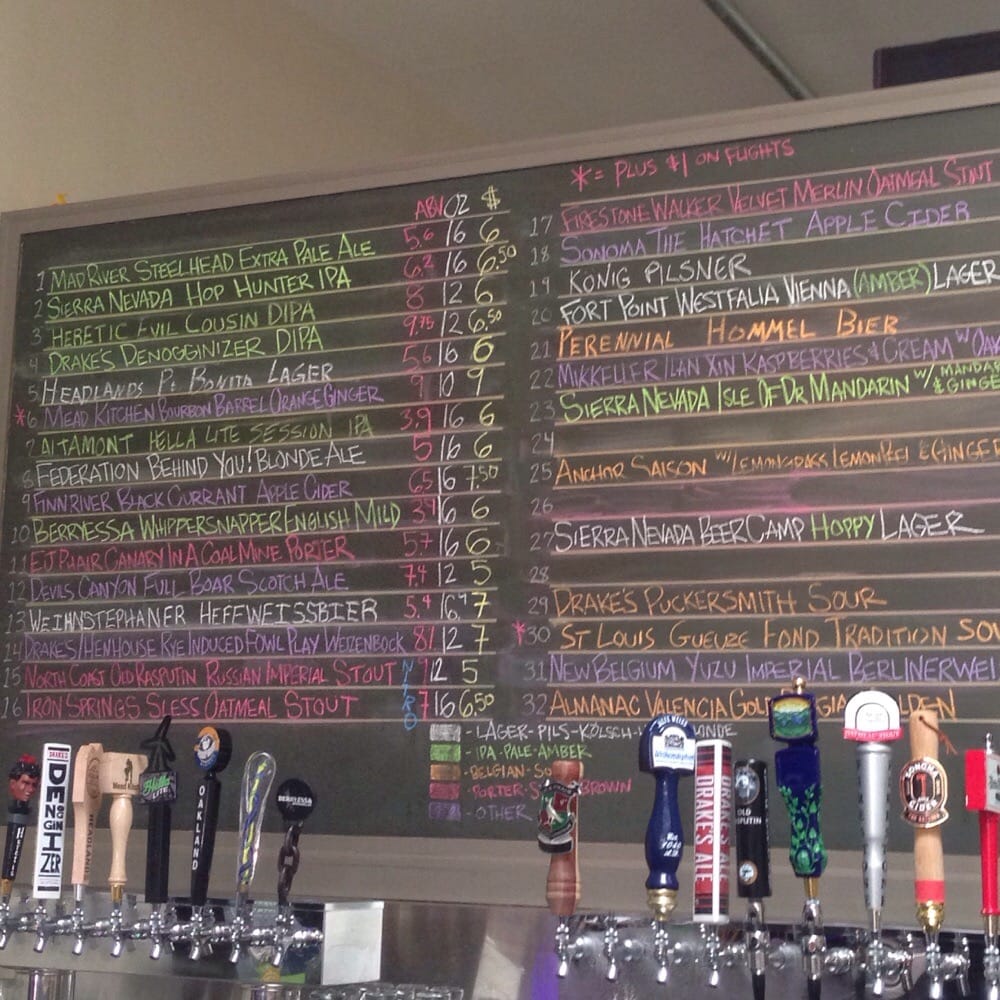 ABV OZ $
1 MAD RIVER STEELHEAD EXTRA PALE ALE 5.6 16 6
2 SIERRA NEVADA HOP HUNTER IPA 6.2 16 6.50
3 HERETIC EVIL COUSIN DIPA 8 12 6
4 DRAKE'S DENOGGINIZER DIPA 9.75 12 6.50
5 HEADLANDS Pt BONITA LAGER 5.6 16 6
*6 MEAD KITCHEN BOURBON BARREL ORANGE GINGER 9 10 9
7 ALTAMONT HELLA LITE SESSION IPA 3.9 16 6
8 FEDERATION BEHIND YOU! BLONDE ALE 5 16 6
9 FINNRIVER BLACK CURRANT APPLE CIDER 6.5 16 7.50
10 BERRYESSA WHIPPERSNAPPER ENGLISH MILD 16 6
11 EJ PHAIR CANARY IN A COAL MINE PORTER 5.7 16 6
12 DEVILS CANYON FULL BOAR SCOTCH ALE 7.4 12 5
13 WEIHNSTEPHANER HEFFWEISSBIER 5.4 16.9 7
14 DRAKES/HENHOUSE RYE INDUCED FOWL PLAY WEIZENBOCK 8.1 12 7
15 NORTH COAST OLD RASPUTIN RUSSIAN IMPERIAL STOUT 9 12 5
16 IRON SPRINGS SLESS OATMEAL STOUT 7 16 6.50
NITRO
* = PLUS $1 ON FLIGHTS
17 FIRESTONE WALKER VELVET MERLIN OATMEAL STOUT
18 SONOMA THE HATCHET APPLE CIDER
19 KÖNIG PILSNER
20 FORT POINT WESTFALIA VIENNA (AMBER) LAGER
21 PERENNIAL HOMMEL BIER
22 MIKKELLER/LAN XIN RASPBERRIES & CREAM W/ OA
23 SIERRA NEVADA ISLE OF DR MANDARIN W/ MANDA
& GINGE
24
25 ANCHOR SAISON W/ LEMONGRASS LEMON & GINGER
26
27 SIERRA NEVADA BEER CAMP HOPPY LAGER
28
29 DRAKE'S PUCKERSMITH SOUR
*30 ST LOUIS GUEUZE FOND TRADITION SO
31 NEW BELGIUM YUZU IMPERIAL BERLINERWEI
32 ALMANAC VALENCIA GOL GIA LDEN
- LAGER-PILS-KÖLSCH- ONDE
- IPA-PALE-AMBER
- BELGIAN-SO
- PORTER-S BROWN
- OTHER
DRAKE'S
DENOGGINIZER
HEADLANDS
Hella
LITE
OAKLAND
BERRYESSA
DRAKE'S ALE
OLD
RASPUTIN
SONOMA
CIDER